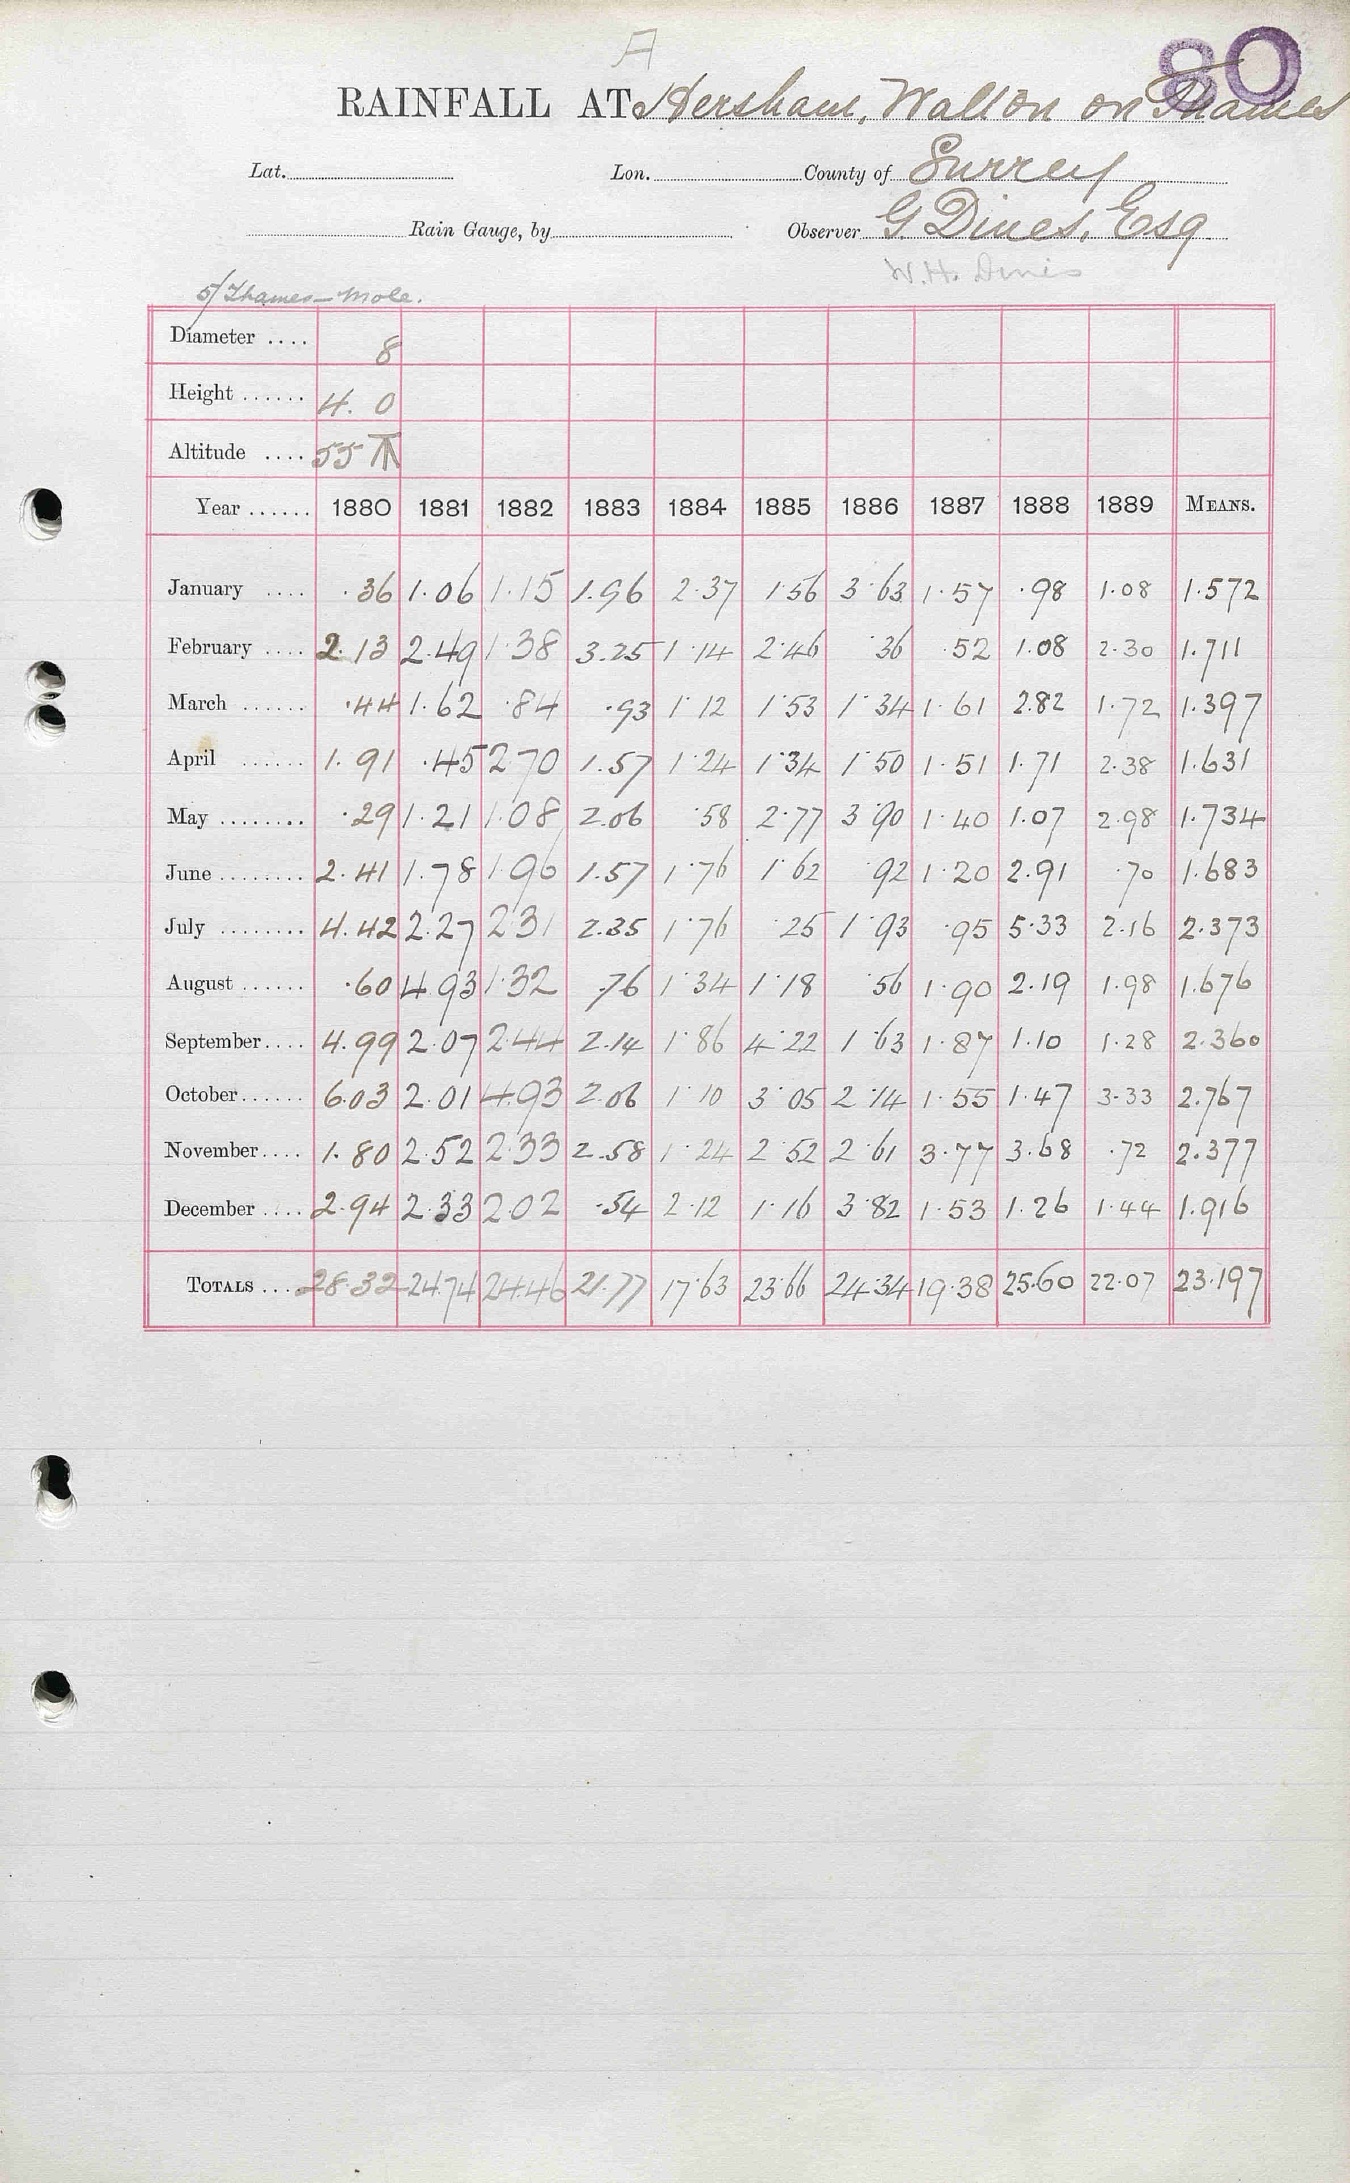 A
80
RAINFALL AT Hersham, Walton on Thames
Lat. Lon. County of Surrey
Rain Gauge, by Observer G. Dines, Esq
W. H. Dines
5/ Thames - Mole.
Diameter .... 8
Height ...... 4. 0
Altitude .... 55
Year ...... 1880 1881 1882 1883 1884 1885 1886 1887 1888 1889 MEANS.
January .... .36 1.06 1.15 1.96 2.37 1.56 3.63 1.57 .98 1.08 1.572
February .... 2.13 2.49 1.38 3.25 1.14 2.46 .36 .52 1.08 2.30 1.711
March ...... .44 1.62 .84 .93 1.12 1.53 1.34 1.61 2.82 1.72 1.397
April ...... 1.91 .45 2.70 1.57 1.24 1.34 1.50 1.51 1.71 2.38 1.631
May ........ .29 1.21 1.08 2.06 .58 2.77 3.90 1.40 1.07 2.98 1.734
June ........ 2.41 1.78 1.96 1.57 1.76 1.62 .92 1.20 2.91 .70 1.683
July ........ 4.42 2.27 2.31 2.35 1.76 .25 1.93 .95 5.33 2.16 2.373
August ...... .60 4.93 1.32 .76 1.34 1.18 .56 1.90 2.19 1.98 1.676
September.... 4.99 2.07 2.44 2.14 1.86 4.22 1.63 1.87 1.10 1.28 2.360
October...... 6.03 2.01 4.93 2.06 1.10 3.05 2.14 1.55 1.47 3.33 2.767
November.... 1.80 2.52 2.33 2.58 1.24 2.52 2.61 3.77 3.68 .72 2.377
December .... 2.94 2.33 2.02 .54 2.12 1.16 3.82 1.53 1.26 1.44 1.916
TOTALS .... 28.32 24.74 24.46 21.77 17.63 23.66 24.34 19.38 25.60 22.07 23.197